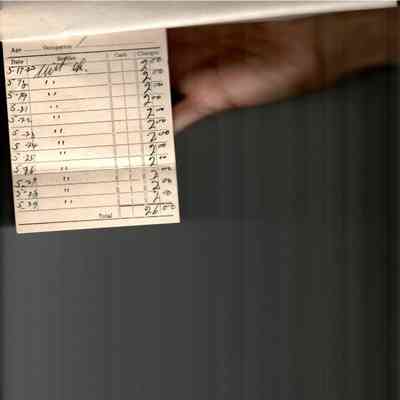 Age Occupation
Date Service Cash Charges
5-17 2.00
5-18 " 2.00
5-19 " 2.00
5-21 2.00
5-22 " 2.00
5-23 " 2.00
5-24 " 2.00
5-25 " 2.00
5-26 " 2.00
" 2.00
5-28 " 2.00
5-29 "
Total 26.00